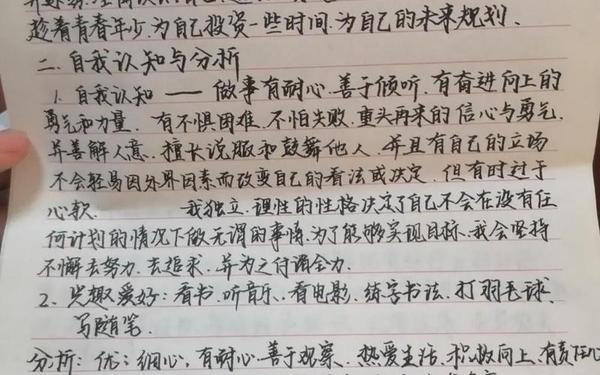 趁着青春年少.为自己投资一些时间.为自己的未来规划.
二.自我认知与分析
1.自我认知 —— 做事有耐心.善于倾听.有奋进向上的
勇气和力量.有不惧困难.不怕失败.重头再来的信心与勇气.
并善解人意.擅长说服和鼓舞他人.并且有自己的立场
不会轻易因外界因素而改变自己的看法或决定.但有时过于
心软. 我独立.理性的性格决定了自己不会在没有任
何计划的情况下做无谓的事情.为了能够实现目标.我会坚持
不懈去努力.去追求.并为之付诸全力.
2.兴趣爱好:看书.听音乐.看电影.练字书法.打羽毛球.
写随笔.
分析:优:细心.有耐心.善于观察.热爱生活.积极向上.有责任心